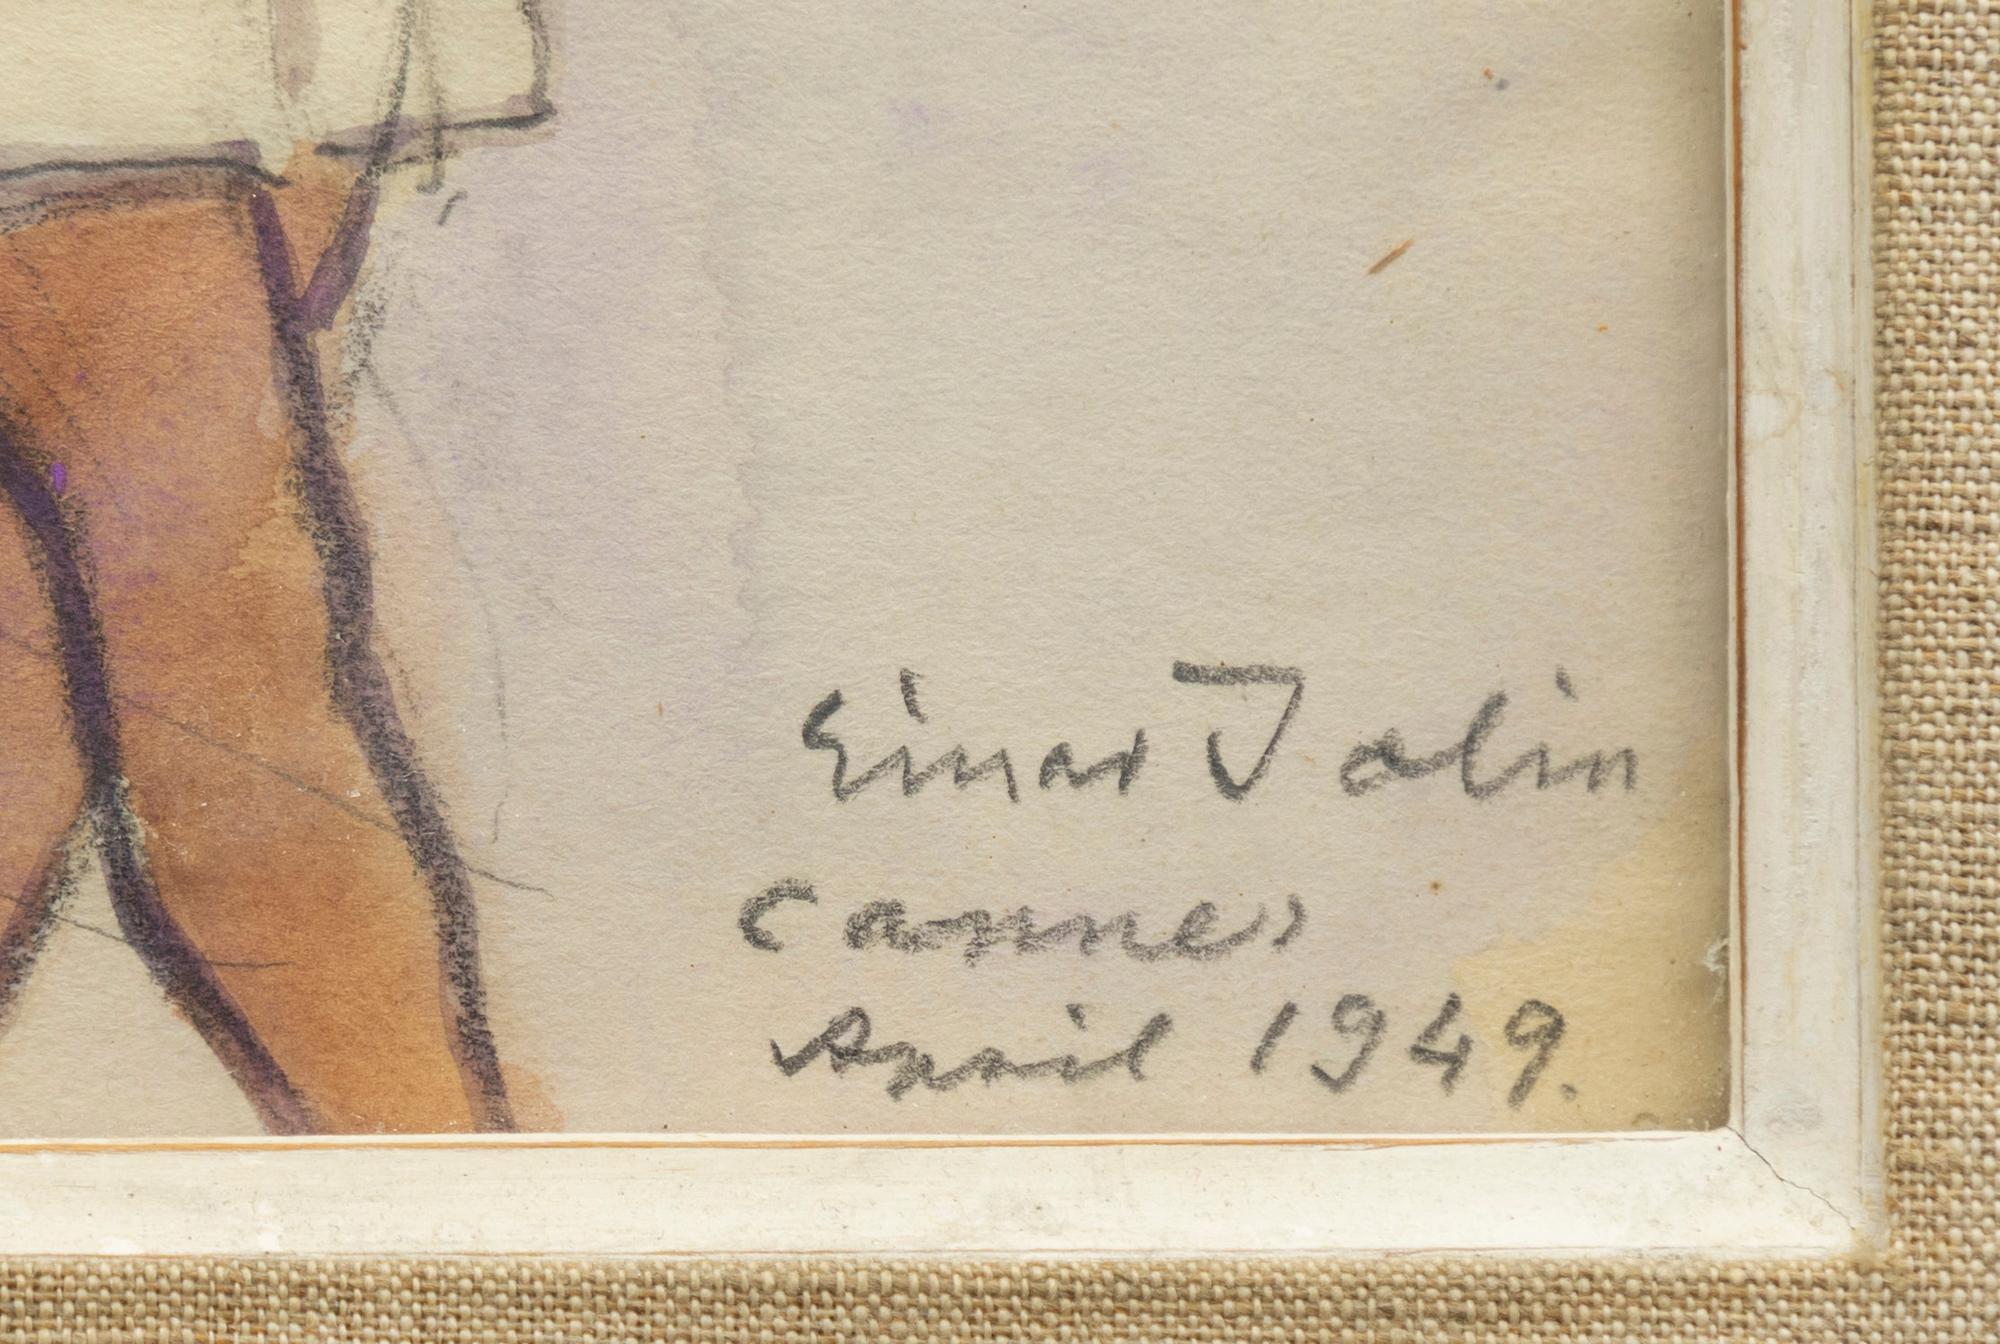 Einar Jolin
Cannes
April 1949.